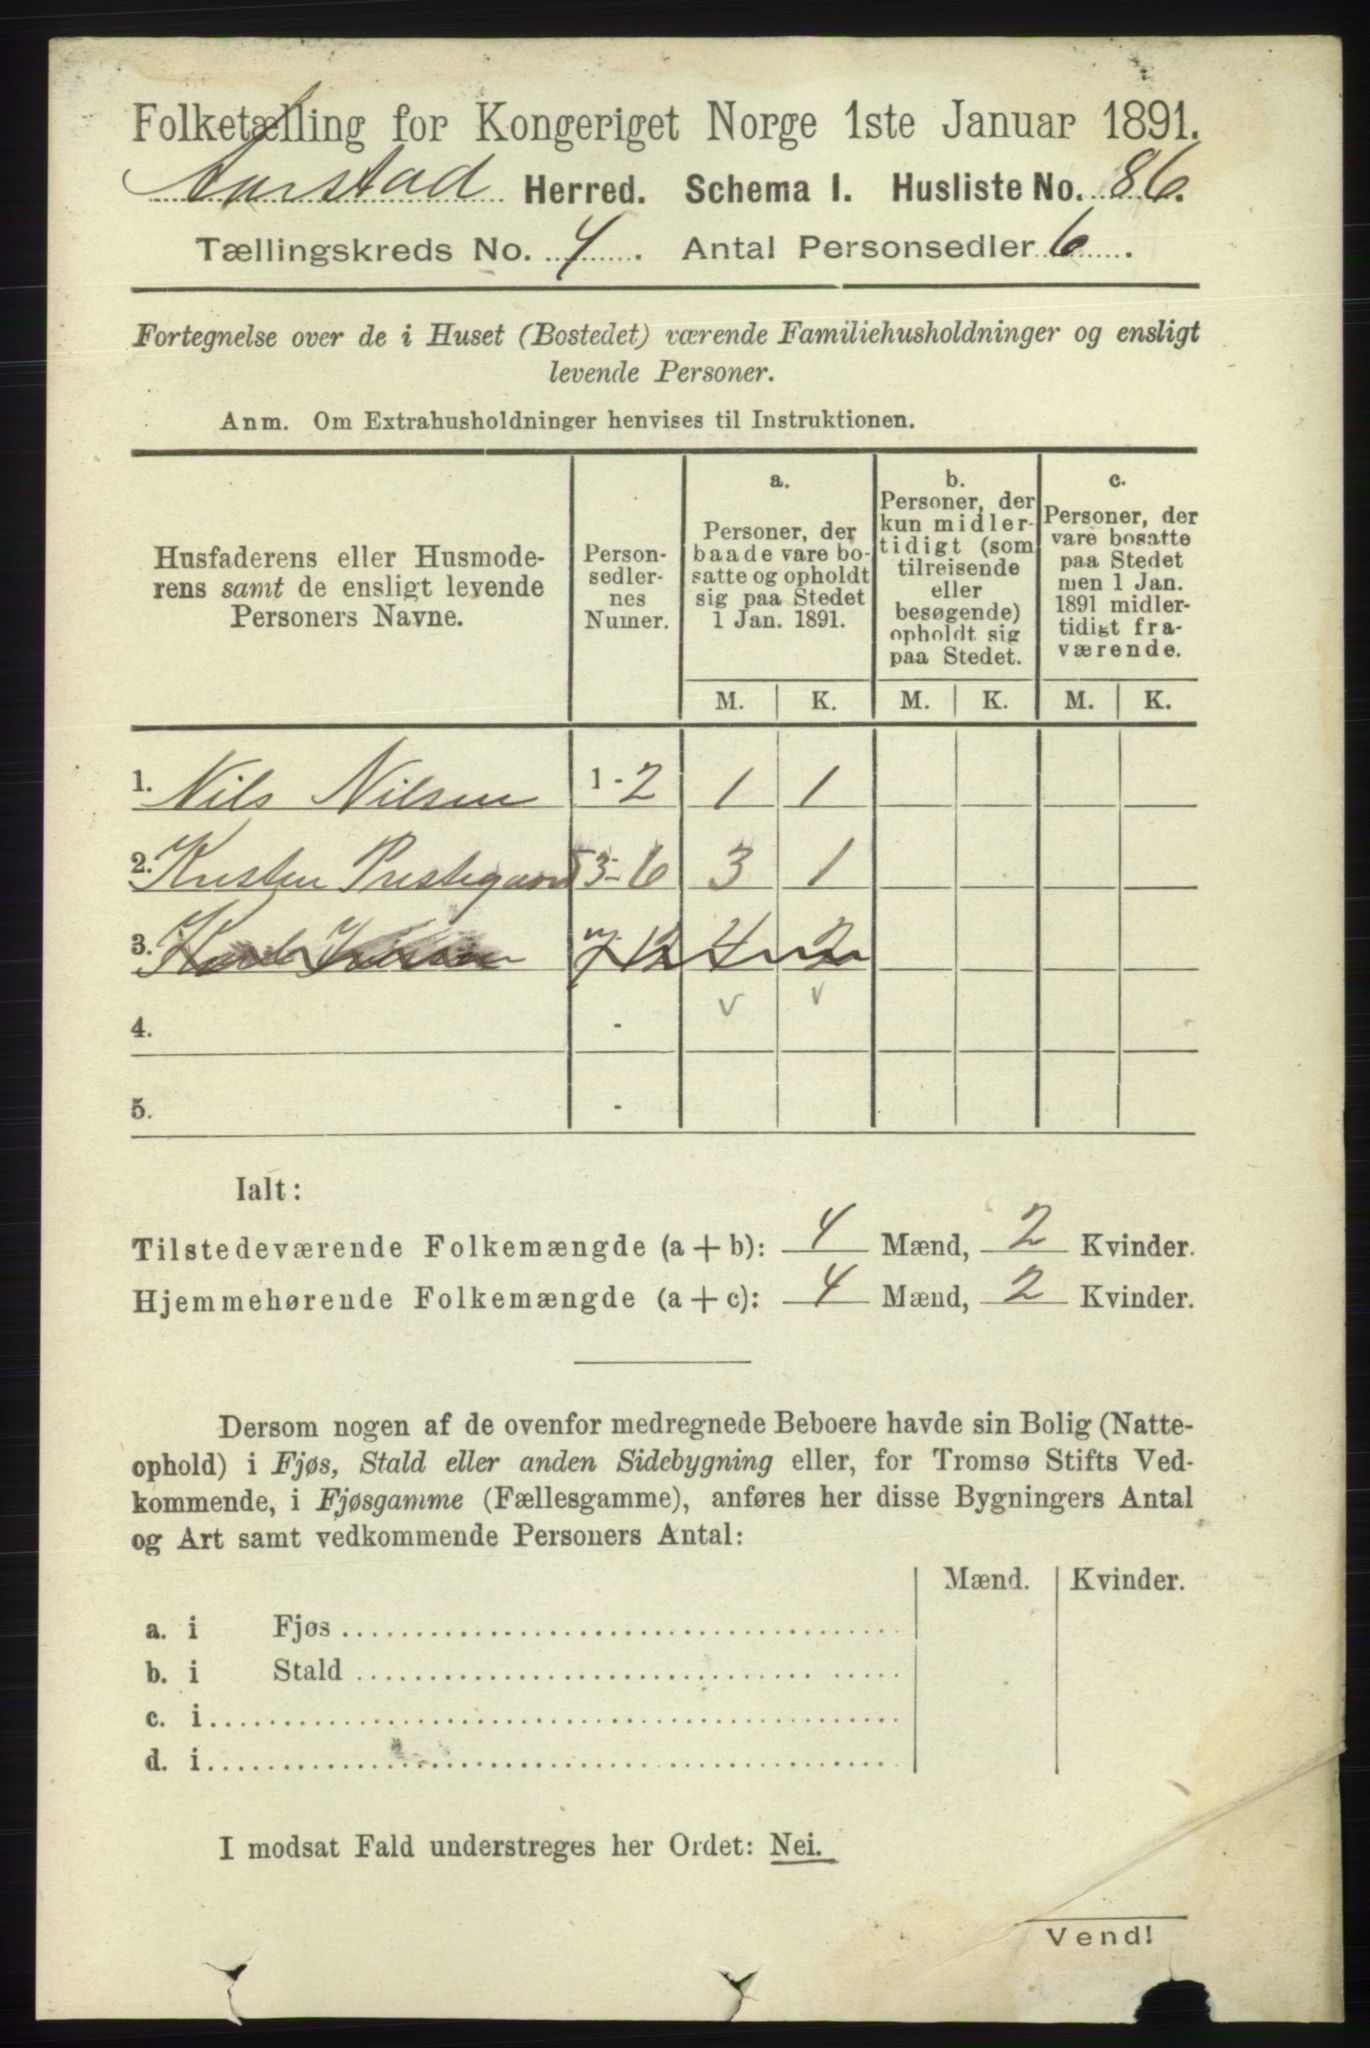 Folketælling for Kongeriget Norge 1ste Januar 1891.
Aarstad Herred. Schema I. Husliste No. 86.
Tællingskreds No. 4. Antal Personsedler 6.
Fortegnelse over de i Huset (Bostedet) værende Familiehusholdninger og ensligt
levende Personer.
Anm. Om Extrahusholdninger henvises til Instruktionen.
Husfaderens eller Husmode-
rens samt de ensligt levende
Personers Navne.
Person-
sedler-
nes
Numer.
a.
Personer, der
baade vare bo-
satte og opholdt
sig paa Stedet
1 Jan. 1891.
b.
Personer, der
kun midler-
tidigt (som
tilreisende
eller
besøgende)
opholdt sig
paa Stedet.
c.
Personer, der
vare bosatte
paa Stedet
men 1 Jan.
1891 midler-
tidigt fra-
værende.
M. K. M. K. M. K.
1. Nils Nilsen 1-2 1 1
2. Kristen Prestegaard 3-6 3 1
3. 7-12 4 2
4. - v v
5. -
Ialt:
Tilstedeværende Folkemængde (a + b): 4 Mænd, 2 Kvinder.
Hjemmehørende Folkemængde (a + c): 4 Mænd, 2 Kvinder.
Dersom nogen af de ovenfor medregnede Beboere havde sin Bolig (Natte-
ophold) i Fjøs, Stald eller anden Sidebygning eller, for Tromsø Stifts Ved-
kommende, i Fjøsgamme (Fællesgamme), anføres her disse Bygningers Antal
og Art samt vedkommende Personers Antal:
Mænd. Kvinder.
a. i Fjøs
b. i Stald
c. i
d. i
I modsat Fald understreges her Ordet: Nei.
Vend!